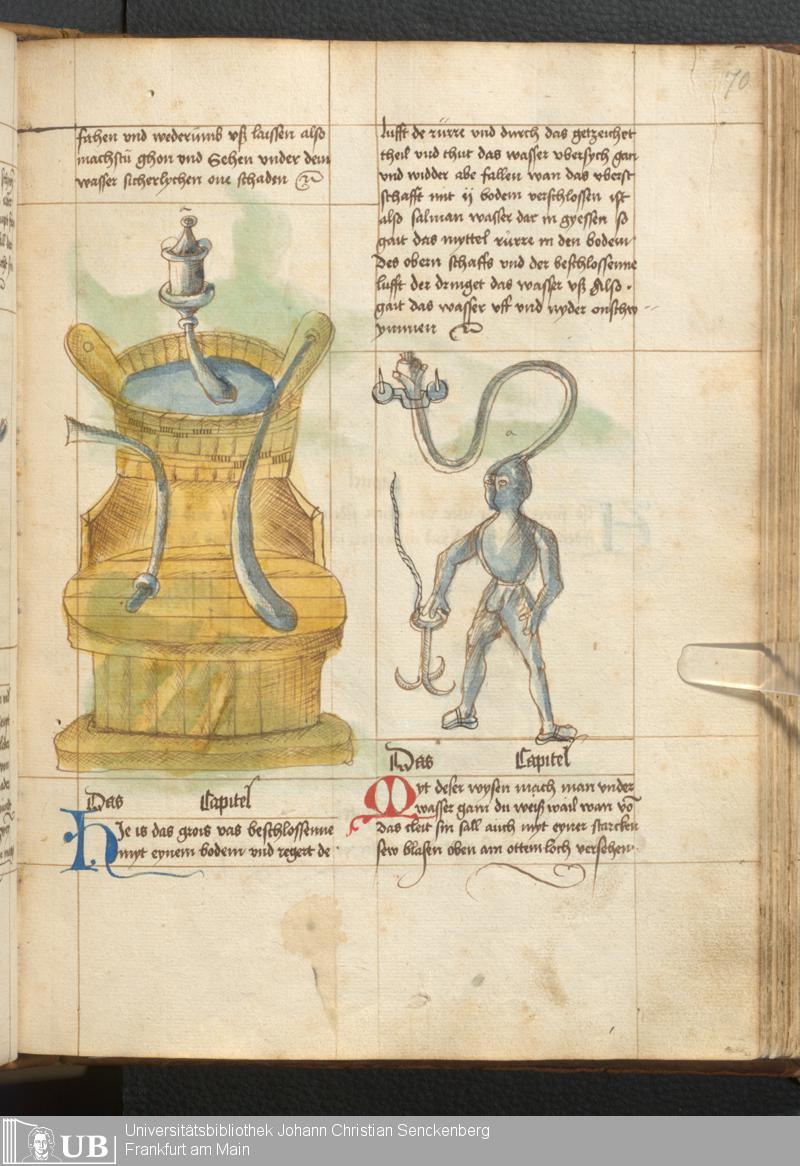 70
fahen vnd wederumb vß laissen also
machstu ghon vnd Sehen vnder dem
wasser sicherlychen one schaden
Das Capitel
HJe is das grois vas beschlossenne
myt eynem bodem vnd regert de
lufft de rürre vnd durch das getzeichet
theil vnd thut das wasser vbersych gan
vnd widder abe fallen wan das vberst
schafft mit ij bodem verschlossen ist
also salman wasser dar in gyessen so
gait das myttel rürre in den bodem
des obern schaffs vnd der beschlossenne
lufft der dringet das wasser vß Also
gait das wasser vff vnd nyder onschw
ymmen
a
Das Capitel
Myt deser wysen mach man vnder
wasser gann du weiß wail wan võ
das cleit sin sall auch myt eyner starcken
sew blasen oben am ottem loch versehen
UB
Universitätsbibliothek Johann Christian Senckenberg
Frankfurt am Main